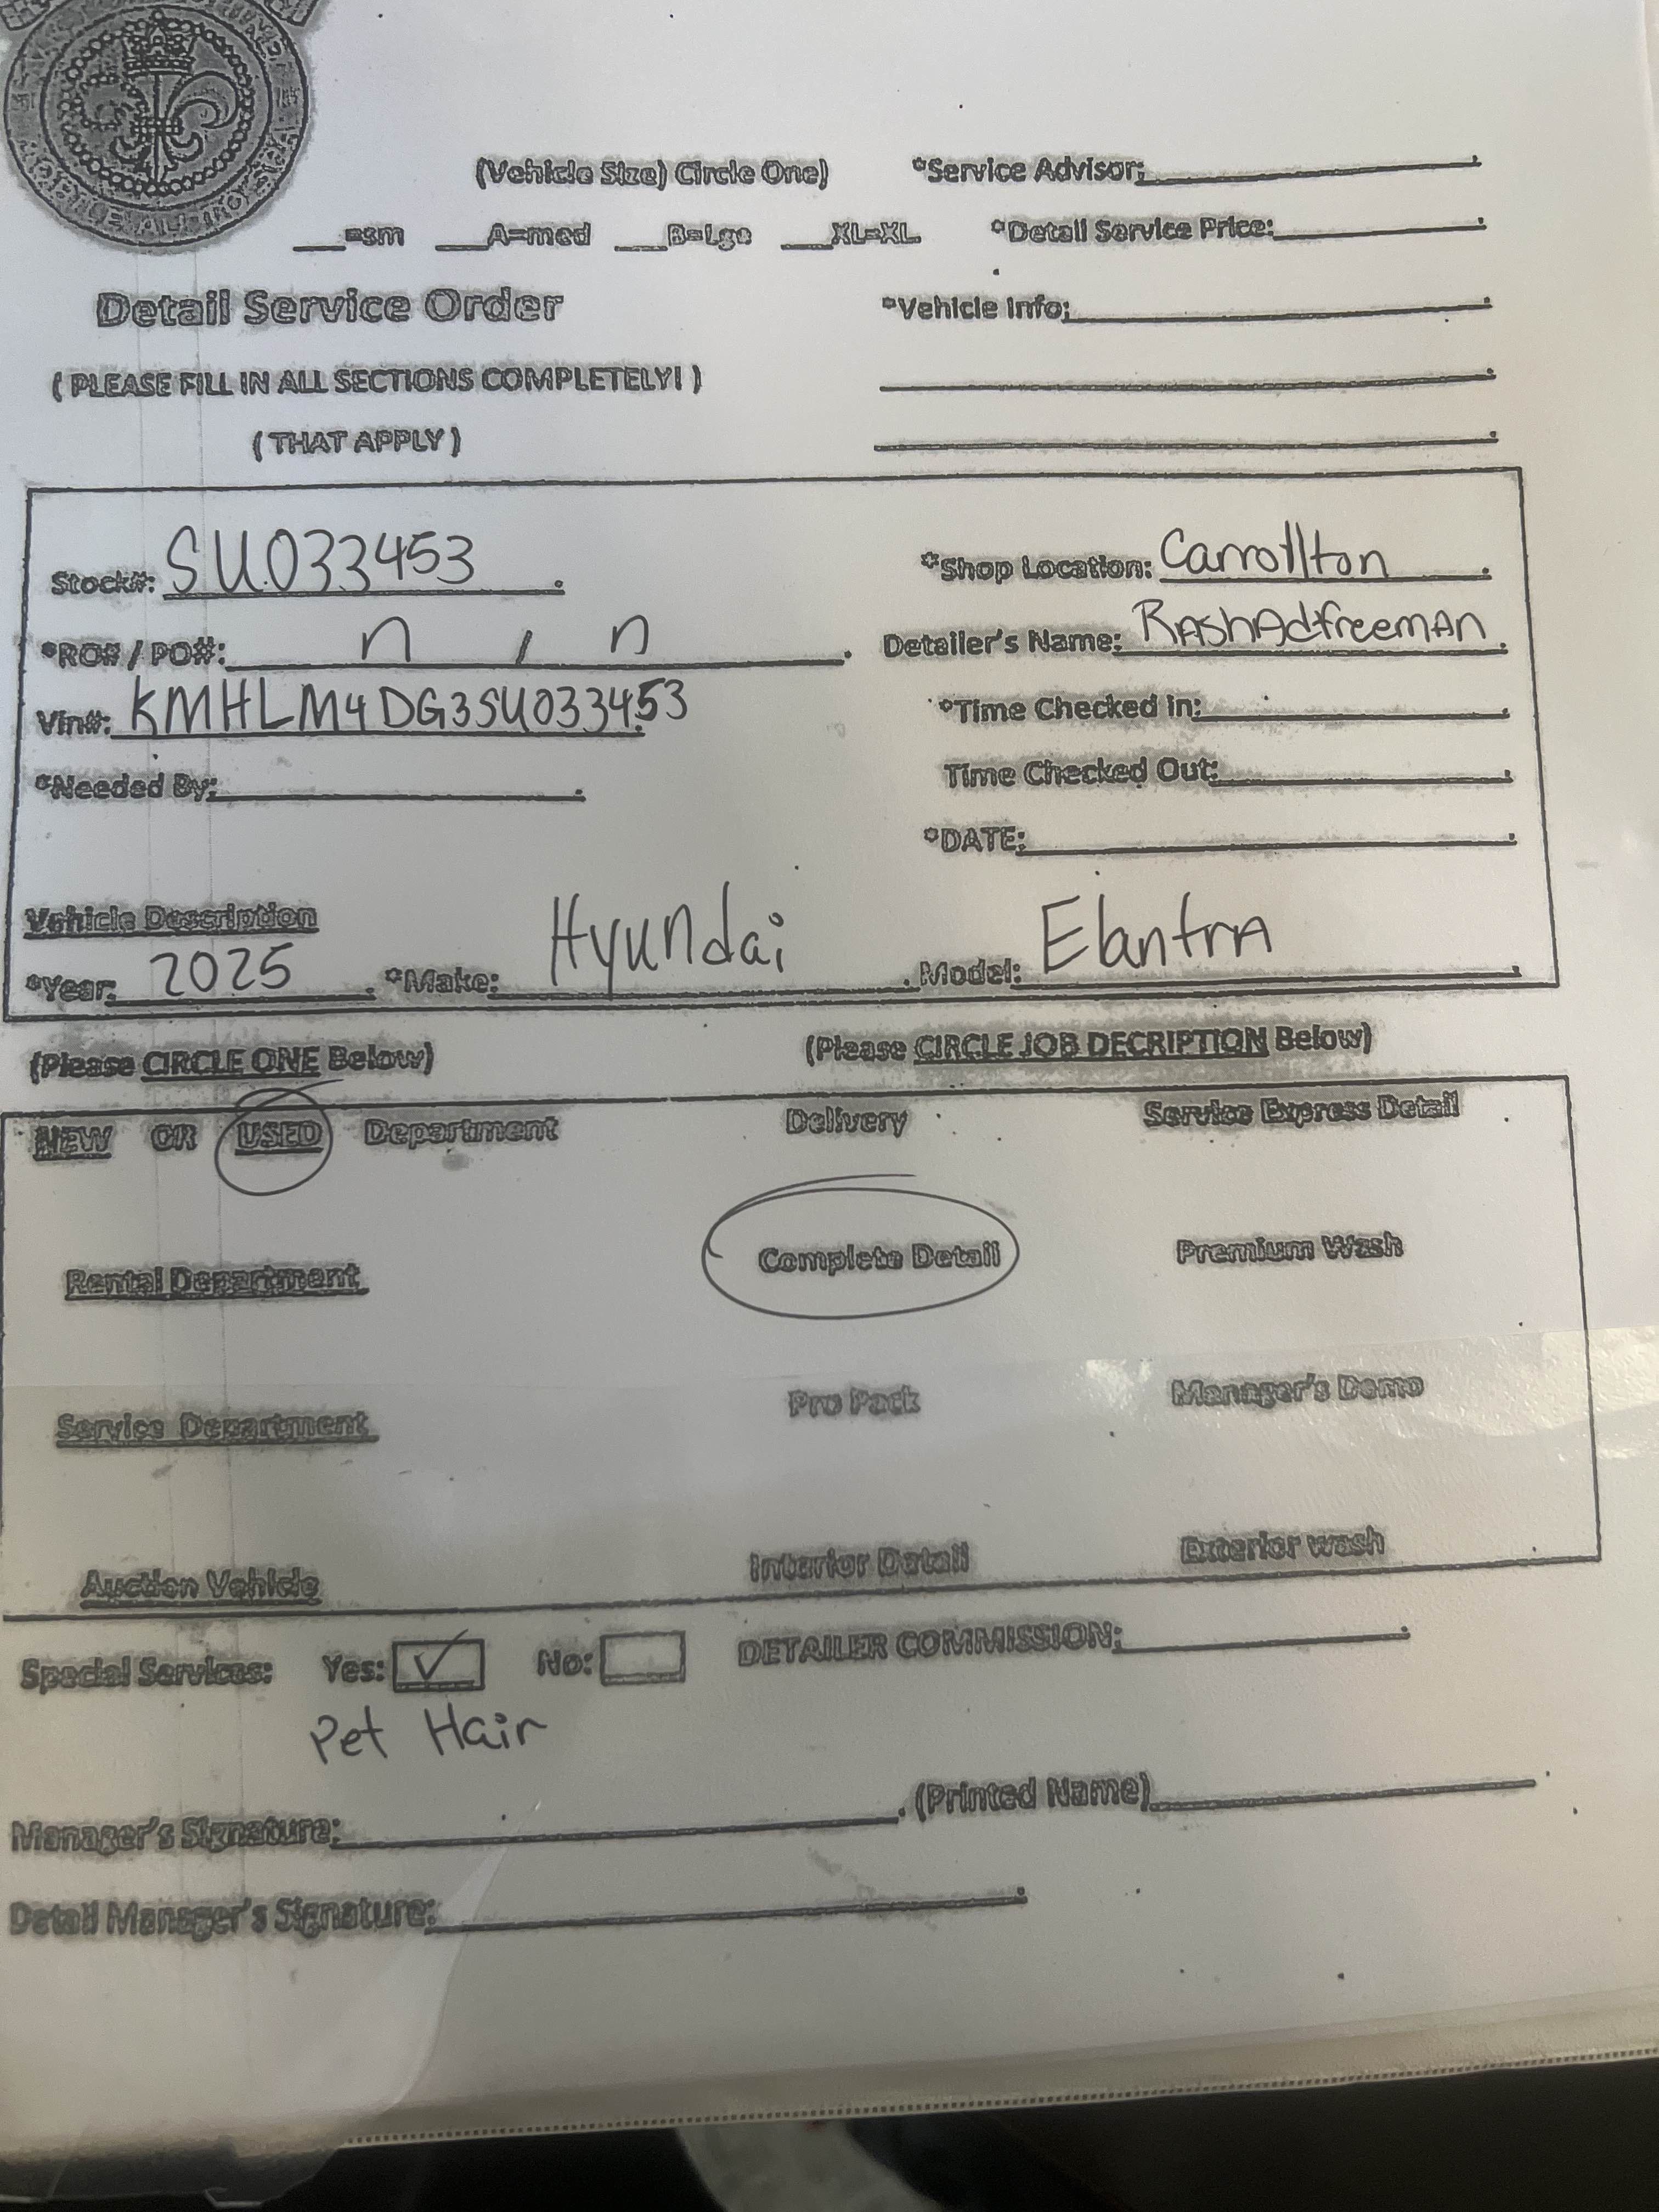 (Vehicle Size) Circle One) *Service Advisor:
=sm A=med B=Lge XL=XL *Detail Service Price:
Detail Service Order *Vehicle Info:
( PLEASE FILL IN ALL SECTIONS COMPLETELY! )
( THAT APPLY )
Stock#: SU033453 *Shop Location: Carrollton
*RO# / PO#: n / n Detailer's Name: RAshAdfreemAn
Vin#: KMHLM4DG3SU033453 *Time Checked in:
*Needed By: Time Checked Out:
*DATE:
Vehicle Description
*Year: 2025 *Make: Hyundai Model: ElantrA
(Please CIRCLE ONE Below) (Please CIRCLE JOB DECRIPTION Below)
NEW OR USED Department Delivery Service Express Detail
Rental Department Complete Detail Premium Wash
Service Department Pro Pack Manager's Demo
Auction Vehicle Interior Detail Exterior wash
Special Services: Yes: ✓ No: DETAILER COMMISSION:
Pet Hair
Manager's Signature: (Printed Name)
Detail Manager's Signature: